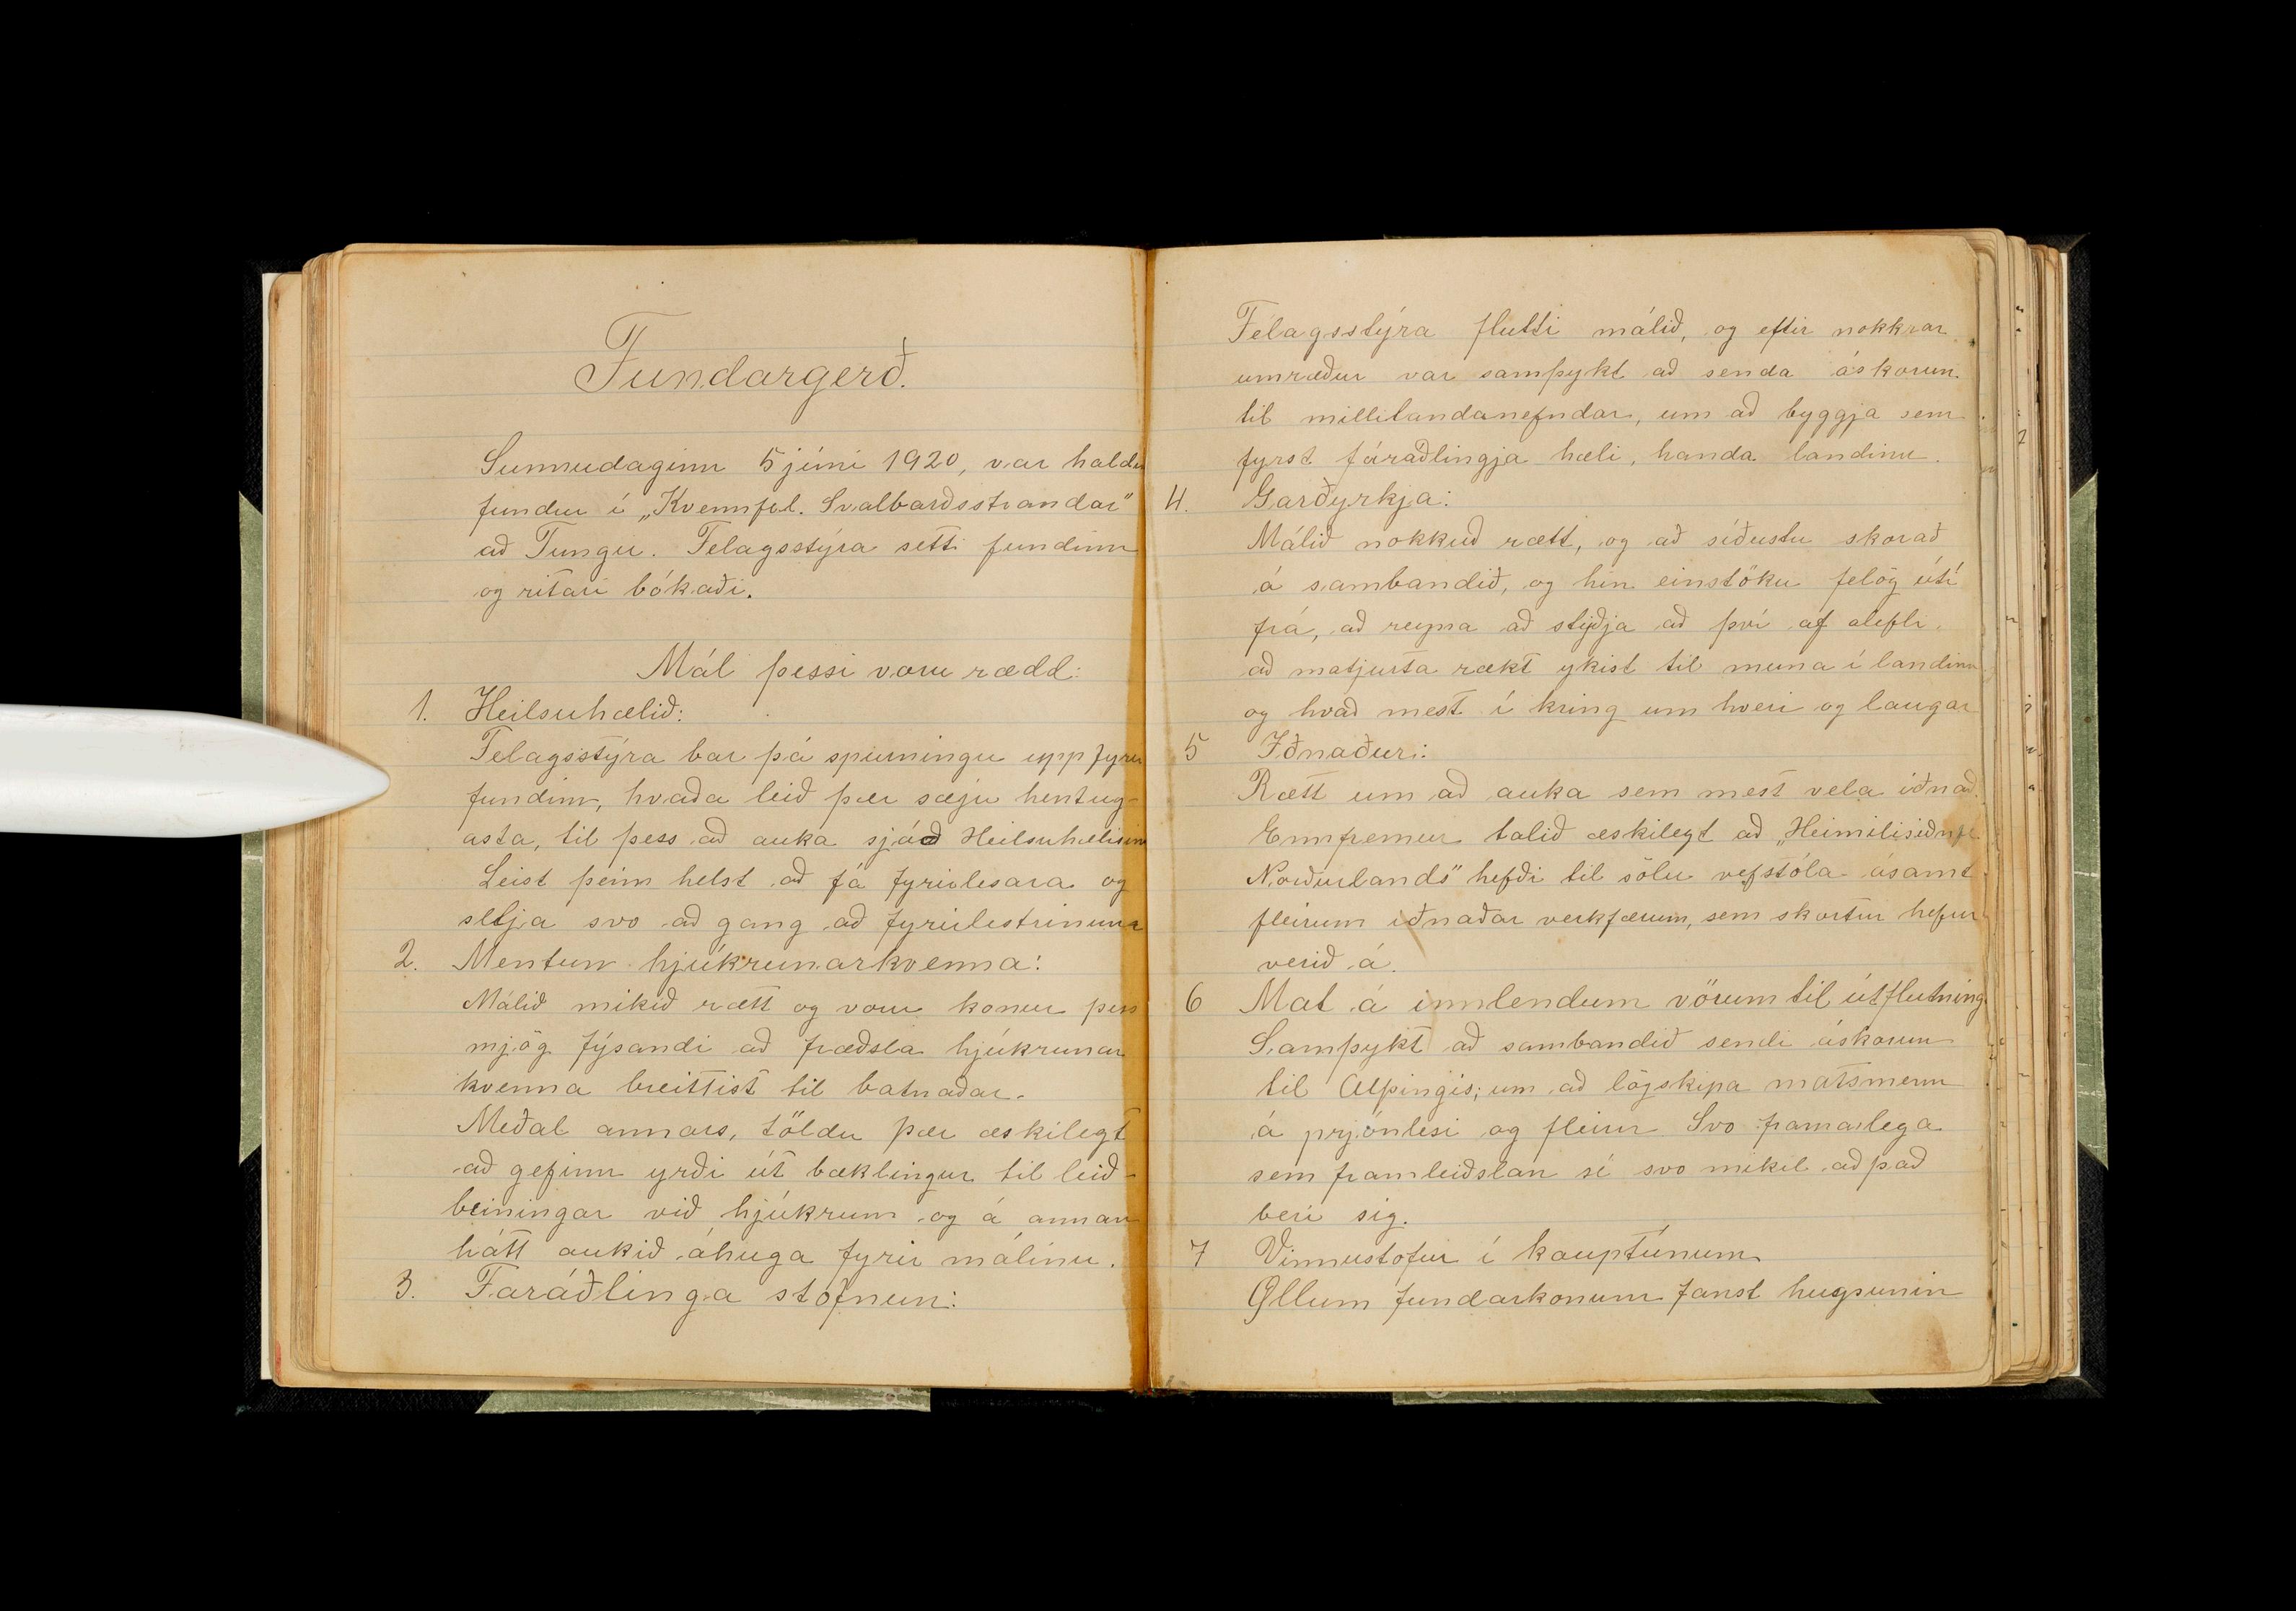 Fundargerð.
Sunnudaginn 5 júni 1920, var haldi
fundur í „Kvennfel. Svalbarðsstrandar"
að Tungu. Felagsstýra setti fundinn
og ritari bókaði.
Mál þessi voru rædd:
1. Heilsuhælið:
Felagsstýra bar þá spurningu upp fyrir
fundinn, hvaða leið þær sæju hentug-
asta, til þess að auka sjóð Heilsuhælisins
Leist þeim helst að fá fyrirlesara og
sellja svo að gang að fyrirlestrinum
2. Mentun hjúkrunarkvenna:
Málið mikið rætt og voru konur þess
mjög fýsandi að fræðsla hjúkrunar
kvenna breittist til batnaðar.
Meðal annars, töldu þær æskilegt
að gefinn yrði út bæklingur til leið-
beiningar við hjúkrun og á annan
hátt aukið áhuga fyrir málinu.
3. Faráðlinga stofnun:
Félagsstýra flutti málið, og eftir nokkrar
umræður var samþykt að senda áskorun
til millilandanefndar, um að byggja sem
fyrst fáraðlingja hæli, handa landinu.
4. Garðyrkja:
Málið nokkuð rætt, og að síðustu skorað
á sambandið, og hin einstöku felög útí
frá, að reyna að styðja að því af alefli,
að matjurta rækt ykist til muna í landinu
og hvað mest í kring um hveri og laugar
5 Iðnaður:
Rætt um að auka sem mest vela iðnað.
Ennfremur talið æskilegt að „Heimilisiðnfl
Norðurlands" hefði til sölu vefstóla ásamt
fleirum iðnaðar verkfærum, sem skortur hefur
verið á.
6 Mat á innlendum vörum til útflutning
Samþykt að sambandið sendi áskorun
til Alþingis; um að lögskipa matsmenn
á prjónlesi og fleiru Svo framarlega
sem framleiðslan sé svo mikil að það
beri sig.
7 Vinnustofur í kauptúnum
Öllum fundarkonum fanst hugsunin